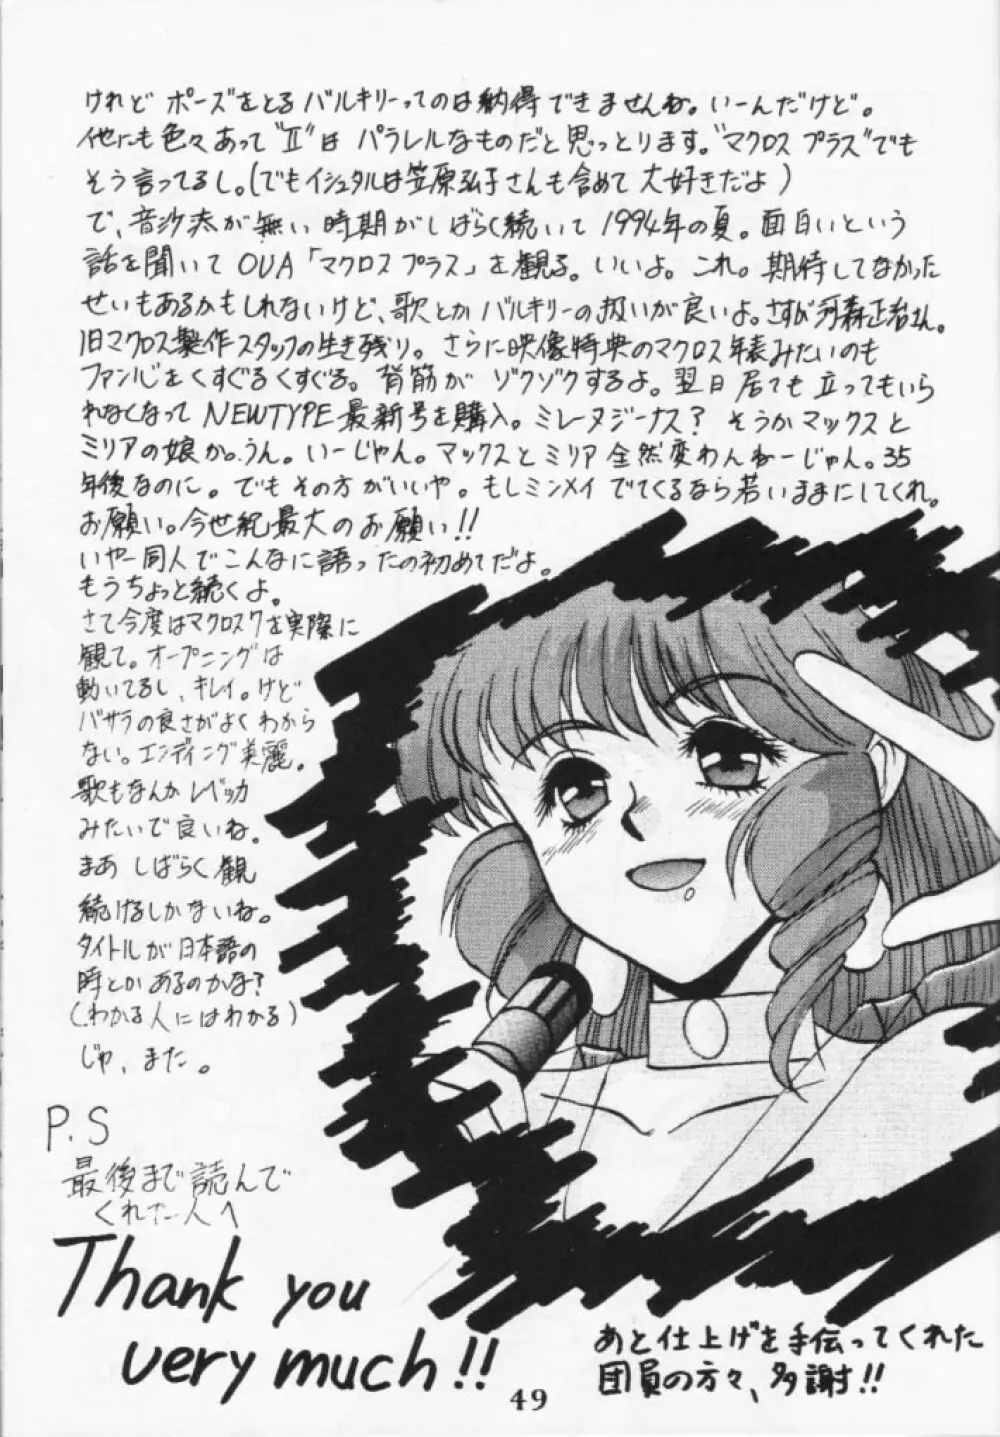 けれど ポーズをとる バルキリーってのは納得できませんね。いーんだけど。
他にも色々あって"Ⅱ"は パラレルなものだと思っとります。"マクロス プラス"でも
そう言ってるし。(でもイシュタルは笠原弘子さんも含めて 大好きだよ)
で、音沙汰が無い時期がしばらく続いて 1994年の夏。面白いという
話を聞いて OVA「マクロス プラス」を観る。いいよ。これ。期待してなかった
せいもあるかもしれないけど、歌とか バルキリーの扱いが良いよ。さすが河森正治さん。
旧マクロス製作スタッフの生き残り。さらに映像特典のマクロス年表みたいのも
ファン心をくすぐるくすぐる。背筋が ゾクゾクするよ。翌日居ても立ってもいら
れなくなって NEWTYPE最新号を購入。ミレーヌジーナス? そうかマックスと
ミリアの娘か。うん。いーじゃん。マックスとミリア全然変わんねーじゃん。35
年後なのに。でもその方がいいや。もしミンメイ でてくるなら若いままにしてくれ。
お願い。今世紀最大のお願い!!
いやー同人でこんなに語ったの初めてだよ。
もうちょっと続くよ。
さて今度はマクロス7を実際に
観て。オープニングは
動いてるし、キレイ。けど
バサラの良さがよくわから
ない。エンディング美麗。
歌もなんかレベッカ
みたいで良いね。
まあ しばらく観
続けるしかないね。
タイトルが日本語の
時とかあるのかな?
(わかる人にはわかる)
じゃ、また。
P.S
最後まで読んで
くれた人へ
Thank you
very much!!
あと仕上げを手伝ってくれた
団員の方々、多謝!!
49